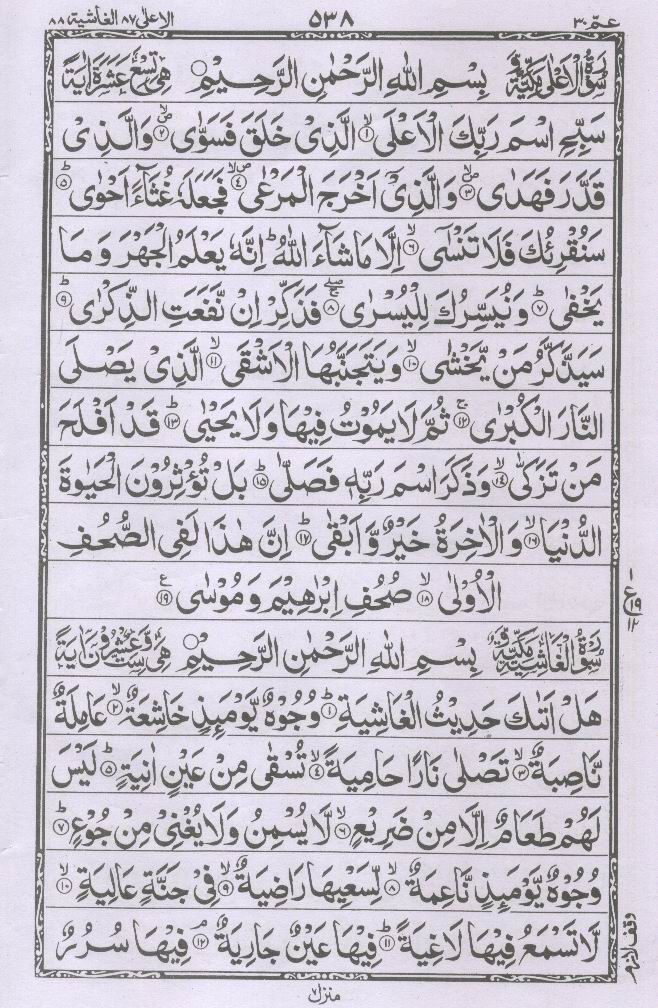 عمّ ٣٠ ٥٣٨ الاعلىٰ ٨٧ الغاشية ٨٨
سُوْرَةُ الْاَعْلٰى مَكِّيَّةٌ بِسْمِ اللهِ الرَّحْمٰنِ الرَّحِيْمِ هِيَ تِسْعَ عَشَرَةَ اٰيَةً
سَبِّحِ اسْمَ رَبِّكَ الْاَعْلَى ۙ﴿۱﴾ الَّذِيْ خَلَقَ فَسَوّٰى ۙ﴿۲﴾ وَالَّذِيْ
قَدَّرَ فَهَدٰى ۙ﴿۳﴾ وَالَّذِيْٓ اَخْرَجَ الْمَرْعٰى ۙ﴿۴﴾ فَجَعَلَهٗ غُثَآءً اَحْوٰى ؕ﴿۵﴾
سَنُقْرِئُكَ فَلَا تَنْسٰٓى ۙ﴿۶﴾ اِلَّا مَا شَآءَ اللهُ ؕ اِنَّهٗ يَعْلَمُ الْجَهْرَ وَمَا
يَخْفٰى ؕ﴿۷﴾ وَنُيَسِّرُكَ لِلْيُسْرٰى ۚۖ﴿۸﴾ فَذَكِّرْ اِنْ نَّفَعَتِ الذِّكْرٰى ؕ﴿۹﴾
سَيَذَّكَّرُ مَنْ يَّخْشٰى ۙ﴿۱۰﴾ وَيَتَجَنَّبُهَا الْاَشْقَى ۙ﴿۱۱﴾ الَّذِيْ يَصْلَى
النَّارَ الْكُبْرٰى ۚ﴿۱۲﴾ ثُمَّ لَا يَمُوْتُ فِيْهَا وَلَا يَحْيٰى ؕ﴿۱۳﴾ قَدْ اَفْلَحَ
مَنْ تَزَكّٰى ۙ﴿۱۴﴾ وَذَكَرَ اسْمَ رَبِّهٖ فَصَلّٰى ؕ﴿۱۵﴾ بَلْ تُؤْثِرُوْنَ الْحَيٰوةَ
الدُّنْيَا ۙ﴿۱۶﴾ وَالْاٰخِرَةُ خَيْرٌ وَّاَبْقٰى ؕ﴿۱۷﴾ اِنَّ هٰذَا لَفِي الصُّحُفِ
الْاُوْلٰى ۙ﴿۱۸﴾ صُحُفِ اِبْرٰهِيْمَ وَمُوْسٰى ﴿۱۹﴾ ع
١ ع ١٩ ١٢
سُوْرَةُ الْغَاشِيَةِ مَكِّيَّةٌ بِسْمِ اللهِ الرَّحْمٰنِ الرَّحِيْمِ هِيَ سِتٌّ وَّعِشْرُوْنَ اٰيَةً
هَلْ اَتٰىكَ حَدِيْثُ الْغَاشِيَةِ ؕ﴿۱﴾ وُجُوْهٌ يَّوْمَئِذٍ خَاشِعَةٌ ۙ﴿۲﴾ عَامِلَةٌ
نَّاصِبَةٌ ۙ﴿۳﴾ تَصْلٰى نَارًا حَامِيَةً ۙ﴿۴﴾ تُسْقٰى مِنْ عَيْنٍ اٰنِيَةٍ ؕ﴿۵﴾ لَيْسَ
لَهُمْ طَعَامٌ اِلَّا مِنْ ضَرِيْعٍ ۙ﴿۶﴾ لَّا يُسْمِنُ وَلَا يُغْنِيْ مِنْ جُوْعٍ ؕ﴿۷﴾
وُجُوْهٌ يَّوْمَئِذٍ نَّاعِمَةٌ ۙ﴿۸﴾ لِّسَعْيِهَا رَاضِيَةٌ ۙ﴿۹﴾ فِيْ جَنَّةٍ عَالِيَةٍ ۙ﴿۱۰﴾
لَّا تَسْمَعُ فِيْهَا لَاغِيَةً ؕ﴿۱۱﴾ فِيْهَا عَيْنٌ جَارِيَةٌ ۘ﴿۱۲﴾ فِيْهَا سُرُرٌ
وقف لازم
منزل ٧